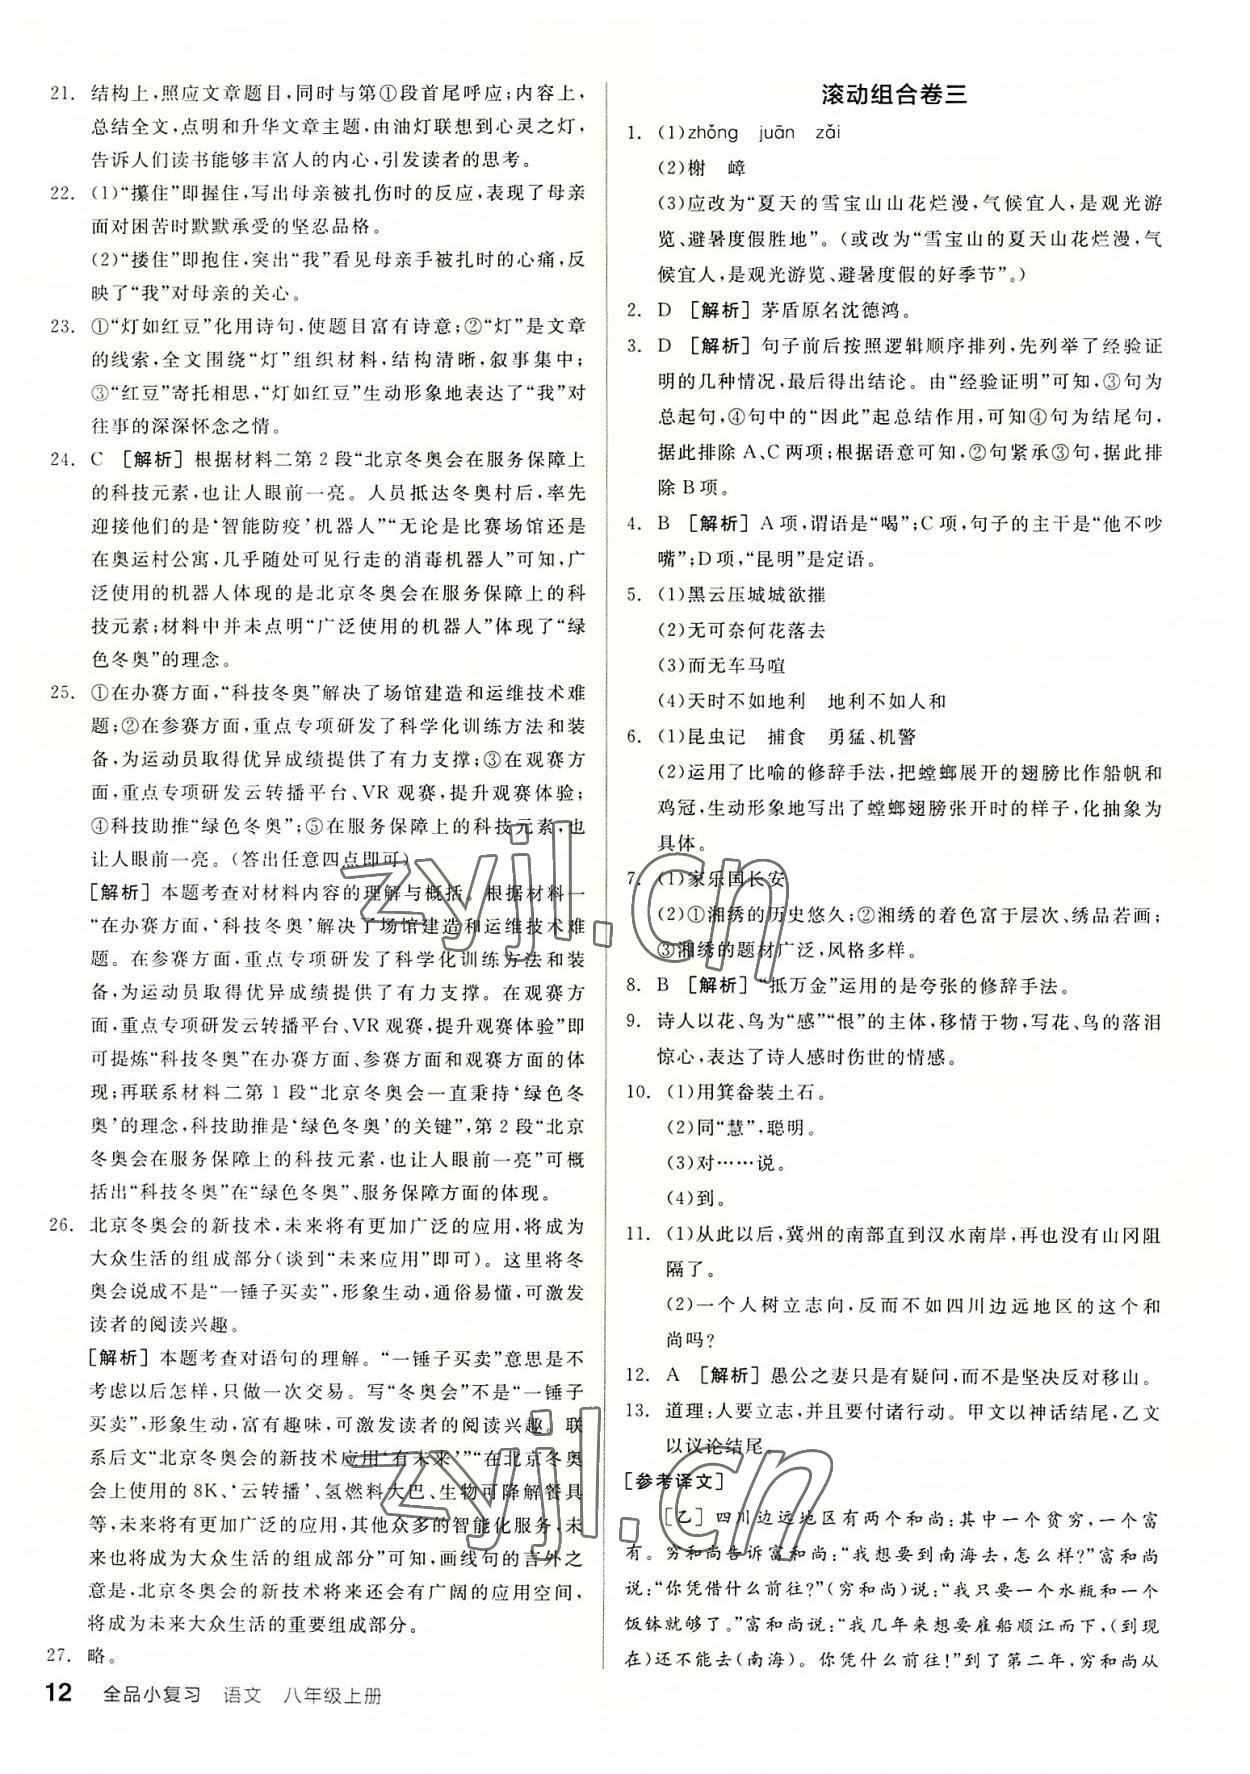 21. 结构上,照应文章题目,同时与第①段首尾呼应;内容上,
总结全文,点明和升华文章主题,由油灯联想到心灵之灯,
告诉人们读书能够丰富人的内心,引发读者的思考。
22. (1)“攥住”即握住,写出母亲被扎伤时的反应,表现了母亲
面对困苦时默默承受的坚忍品格。
(2)“搂住”即抱住,突出“我”看见母亲手被扎时的心痛,反
映了“我”对母亲的关心。
23. ①“灯如红豆”化用诗句,使题目富有诗意;②“灯”是文章
的线索,全文围绕“灯”组织材料,结构清晰,叙事集中;
③“红豆”寄托相思,“灯如红豆”生动形象地表达了“我”对
往事的深深怀念之情。
24. C [解析]根据材料二第2段“北京冬奥会在服务保障上
的科技元素,也让人眼前一亮。人员抵达冬奥村后,率先
迎接他们的是‘智能防疫’机器人”“无论是比赛场馆还是
在奥运村公寓,几乎随处可见行走的消毒机器人”可知,广
泛使用的机器人体现的是北京冬奥会在服务保障上的科
技元素;材料中并未点明“广泛使用的机器人”体现了“绿
色冬奥”的理念。
25. ①在办赛方面,“科技冬奥”解决了场馆建造和运维技术难
题;②在参赛方面,重点专项研发了科学化训练方法和装
备,为运动员取得优异成绩提供了有力支撑;③在观赛方
面,重点专项研发云转播平台、VR观赛,提升观赛体验;
④科技助推“绿色冬奥”;⑤在服务保障上的科技元素,也
让人眼前一亮。(答出任意四点即可)
[解析]本题考查对材料内容的理解与概括。根据材料一
“在办赛方面,‘科技冬奥’解决了场馆建造和运维技术难
题。在参赛方面,重点专项研发了科学化训练方法和装备,
为运动员取得优异成绩提供了有力支撑。在观赛方
面,重点专项研发云转播平台、VR观赛,提升观赛体验”即
可提炼“科技冬奥”在办赛方面、参赛方面和观赛方面的体
现;再联系材料二第1段“北京冬奥会一直秉持‘绿色冬
奥’的理念,科技助推是‘绿色冬奥’的关键”,第2段“北京
冬奥会在服务保障上的科技元素,也让人眼前一亮”可概
括出“科技冬奥”在“绿色冬奥”、服务保障方面的体现。
26. 北京冬奥会的新技术,未来将有更加广泛的应用,将成为
大众生活的组成部分(谈到“未来应用”即可)。这里将冬
奥会说成不是“一锤子买卖”,形象生动,通俗易懂,可激发
读者的阅读兴趣。
[解析]本题考查对语句的理解。“一锤子买卖”意思是不
考虑以后怎样,只做一次交易。写“冬奥会”不是“一锤子
买卖”,形象生动,富有趣味,可激发读者的阅读兴趣。联
系后文“北京冬奥会的新技术应用‘有未来’”“在北京冬奥
会上使用的8K、‘云转播’、氢燃料大巴、生物可降解餐具
等,未来将有更加广泛的应用,其他众多的智能化服务,未
来也将成为大众生活的组成部分”可知,画线句的言外之
意是,北京冬奥会的新技术将来还会有广阔的应用空间,
将成为未来大众生活的重要组成部分。
27. 略。
12 全品小复习 语文 八年级上册
滚动组合卷三
1. (1)zhǒng juān zǎi
(2)榭 嶂
(3)应改为“夏天的雪宝山山花烂漫,气候宜人,是观光游
览、避暑度假胜地”。(或改为“雪宝山的夏天山花烂漫,气
候宜人,是观光游览、避暑度假的好季节”。)
2. D [解析]茅盾原名沈德鸿。
3. D [解析]句子前后按照逻辑顺序排列,先列举了经验证
明的几种情况,最后得出结论。由“经验证明”可知,③句为
总起句,④句中的“因此”起总结作用,可知④句为结尾句,
据此排除A、C两项;根据语意可知,②句紧承③句,据此排
除B项。
4. B [解析]A项,谓语是“喝”;C项,句子的主干是“他不吵
嘴”;D项,“昆明”是定语。
5. (1)黑云压城城欲摧
(2)无可奈何花落去
(3)而无车马喧
(4)天时不如地利 地利不如人和
6. (1)昆虫记 捕食 勇猛、机警
(2)运用了比喻的修辞手法,把螳螂展开的翅膀比作船帆和
鸡冠,生动形象地写出了螳螂翅膀张开时的样子,化抽象为
具体。
7. (1)家乐国长安
(2)①湘绣的历史悠久;②湘绣的着色富于层次、绣品若画;
③湘绣的题材广泛,风格多样。
8. B [解析]“抵万金”运用的是夸张的修辞手法。
9. 诗人以花、鸟为“感”“恨”的主体,移情于物,写花、鸟的落泪
惊心,表达了诗人感时伤世的情感。
10. (1)用箕畚装土石。
(2)同“慧”,聪明。
(3)对……说。
(4)到。
11. (1)从此以后,冀州的南部直到汉水南岸,再也没有山冈阻
隔了。
(2)一个人树立志向,反而不如四川边远地区的这个和
尚吗?
12. A [解析]愚公之妻只是有疑问,而不是坚决反对移山。
13. 道理:人要立志,并且要付诸行动。甲文以神话结尾,乙文
以议论结尾。
[参考译文]
[乙]四川边远地区有两个和尚:其中一个贫穷,一个富
有。穷和尚告诉富和尚:“我想要到南海去,怎么样?”富和尚
说:“你凭借什么前往?”(穷和尚)说:“我只要一个水瓶和一个
饭钵就够了。”富和尚说:“我几年来想要雇船顺江而下,(到现
在)还不能去(南海)。你凭什么前往!”到了第二年,穷和尚从
zyjl.cn
zyjl.cn